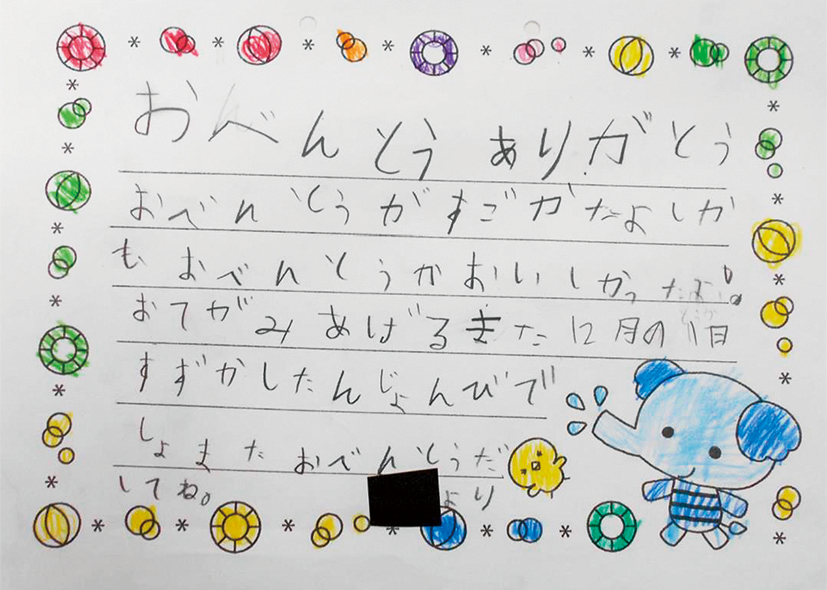 おべんとうありがとう
おべんとうがすごかたよしか
もおべんとうがおいしかったよ!
おてがみあげるまた12月の1日
すずかしたんじょんびで
しょまたおべんとうだ
してね。より